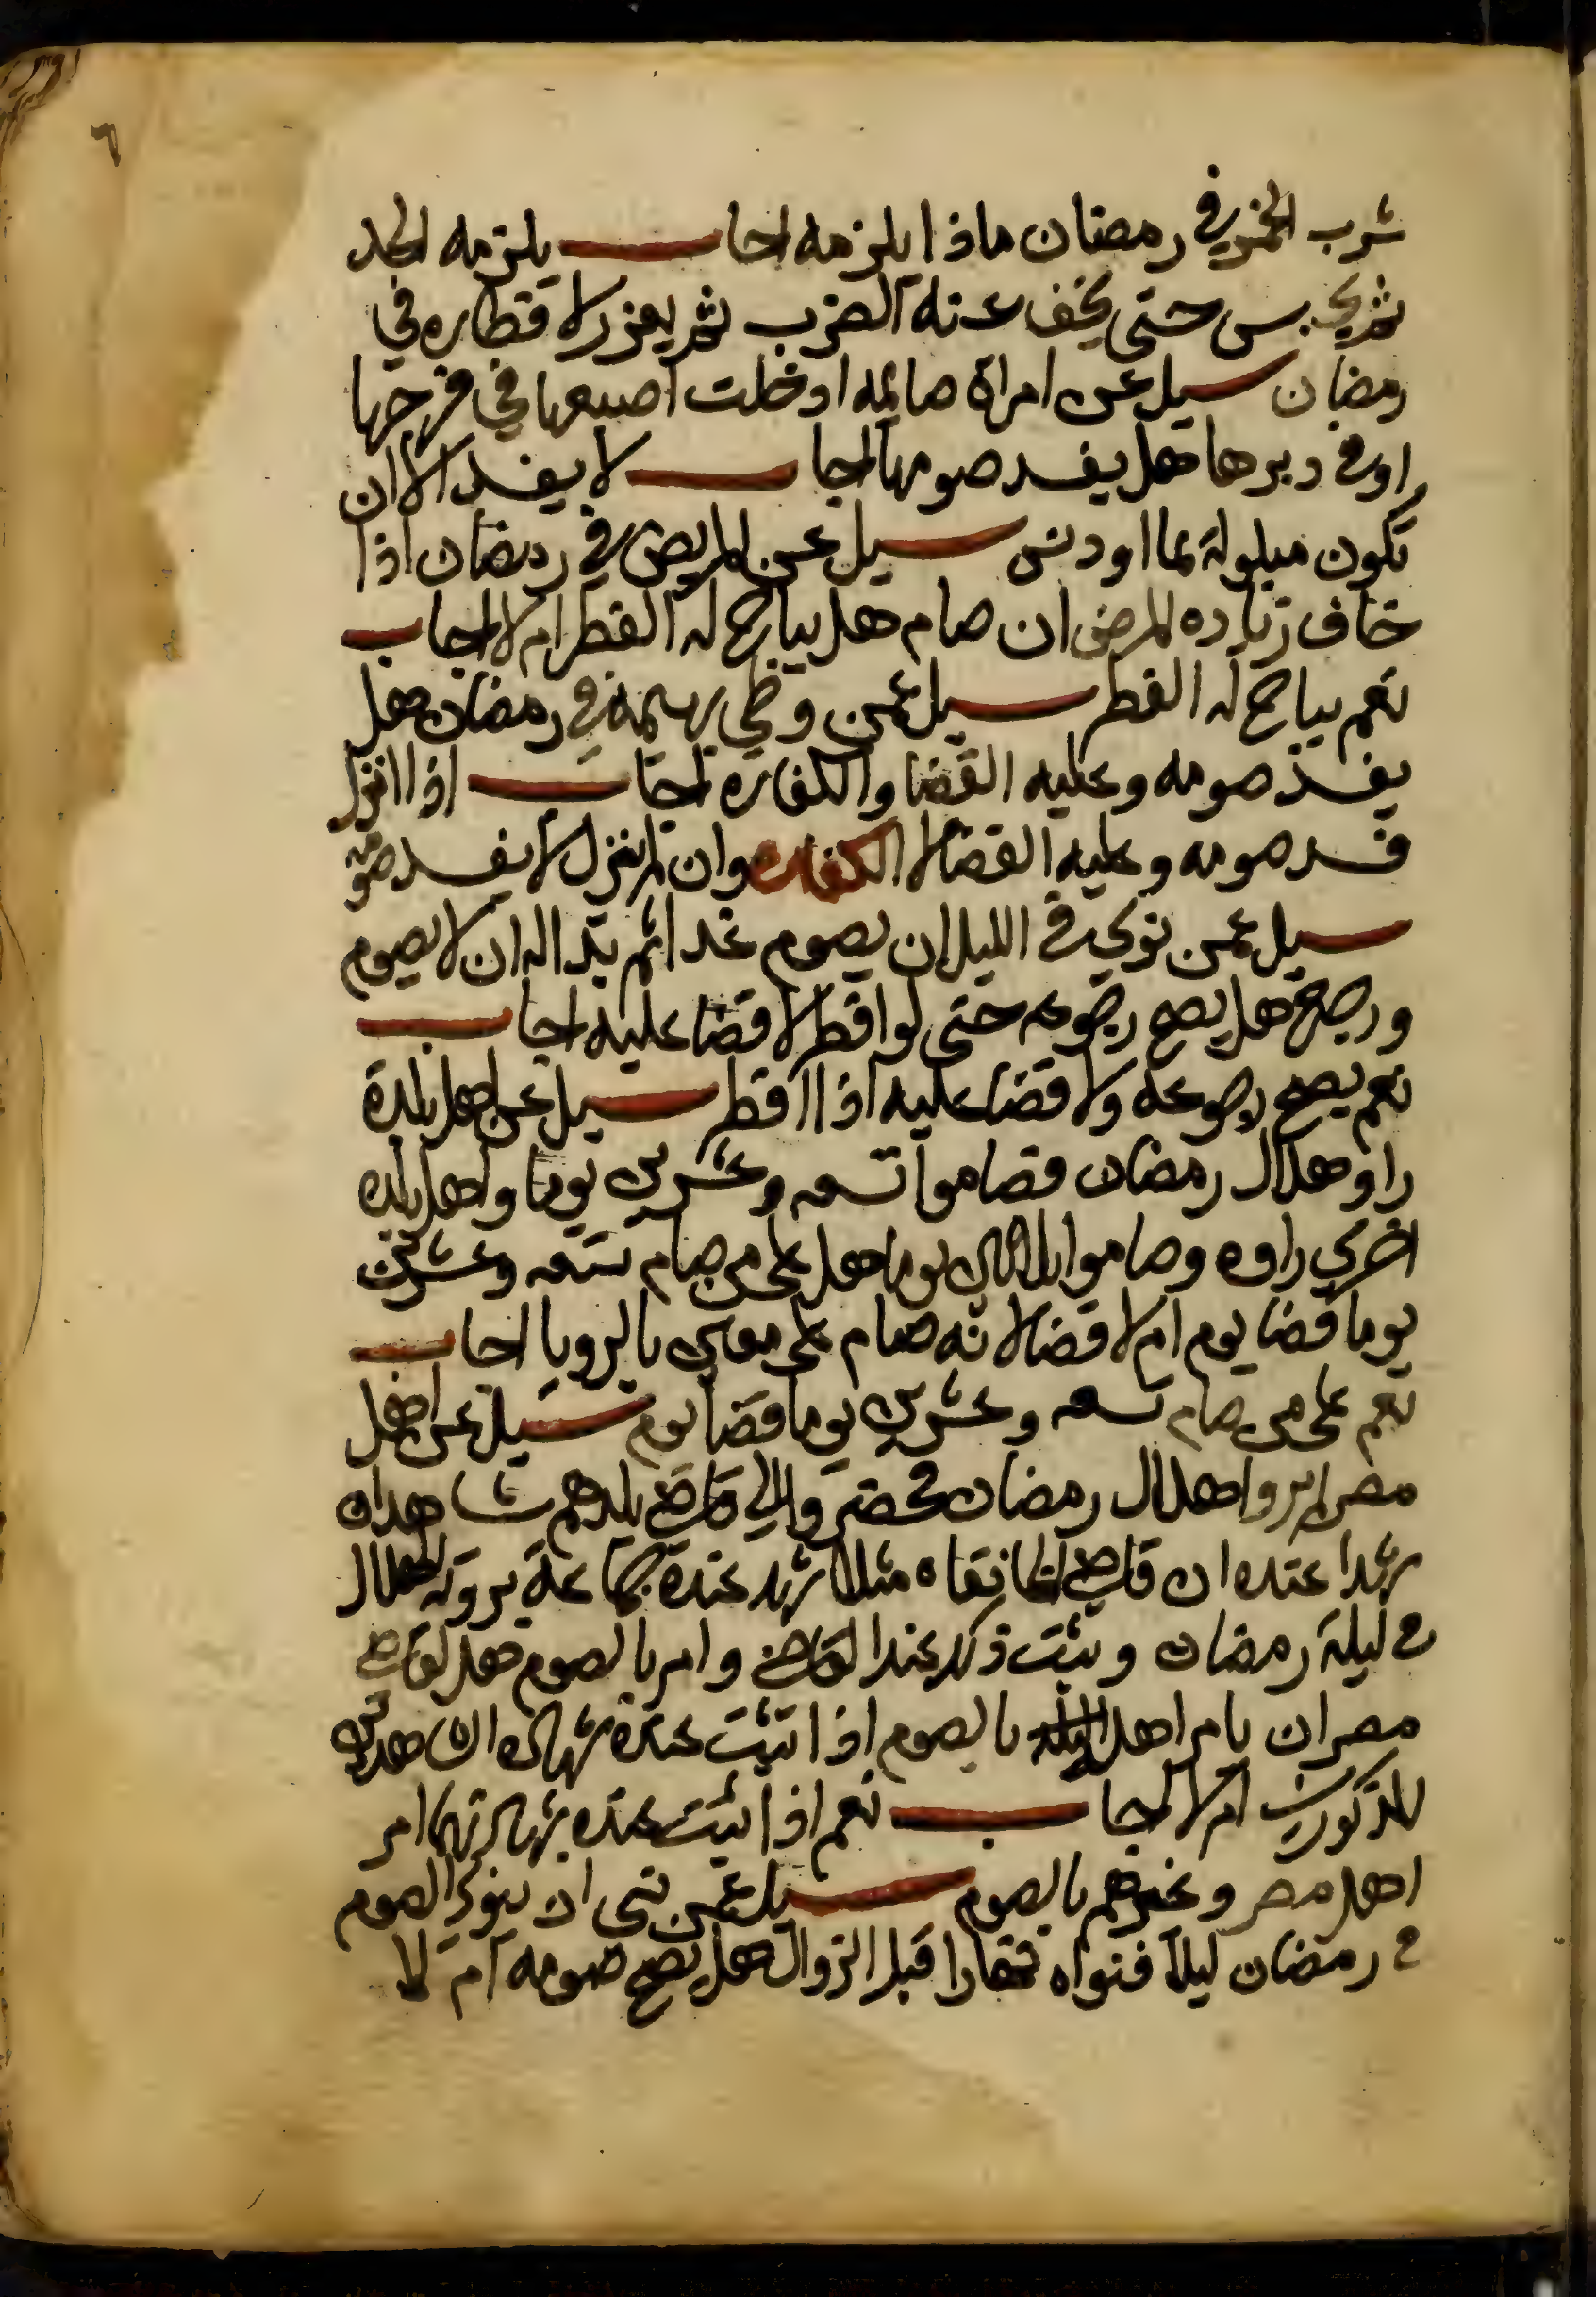 ٦
شرب الخمر في رمضان ماذا يلزمه اجاب يلزمه الحد
ثم يحبس حتى يخف عنه الضرب ثم يعزر لافطاره في
رمضان سيل عن امراة صايمه ادخلت اصبعها في فرجها
او في دبرها هل يفسد صومها اجاب لا يفسد الا ان
تكون مبلولة بما او دهن سيل عن المريض في رمضان اذا
خاف زياده المرض ان صام هل يباح له الفطر ام لا اجاب
نعم يباح له الفطر سيل عمن وطي بهيمة في رمضان هل
يفسد صومه وعليه القضا والكفاره اجاب اذا انزل
فسد صومه وعليه القضا لا الكفاره وان لم ينزل لا يفسد صومه
سيل عمن نوي في الليل ان يصوم غدا ثم بدا له ان لا يصوم
ورجع هل يصح رجوعه حتى لو افطر لا قضا عليه اجاب
نعم يصح رجوعه ولا قضا عليه اذا افطر سيل عن اهل بلدة
راو هلال رمضان فصاموا تسعه وعشرين يوما واهل بلده
اخري راوه وصاموا ثلاثين يوما هل على من صام تسعه وعشرين
يوما قضا يوم ام لا قضا لانه صام على معنى بالرويا اجاب
نعم على من صام تسعه وعشرين يوما قضا يوم سيل عن اهل
مصر لم يروا هلال رمضان فحضر والي قاضي بلدهم شاهدان
شهدا عنده ان قاضي الخانقاه مثلا شهد عنده جماعة بروية الهلال
في ليلة رمضان وثبت ذلك عند القاضي وامر بالصوم هل لقاضي
مصر ان يامر اهل بالصوم اذا ثبت عنده شهادة هذين
المذكورين ام لا اجاب نعم اذا ثبت عنده شهادتهما امر
اهل مصر وغيرهم بالصوم سيل عمن نسى ان ينوي الصوم
في رمضان ليلا فنواه نهارا قبل الزوال هل يصح صومه ام لا